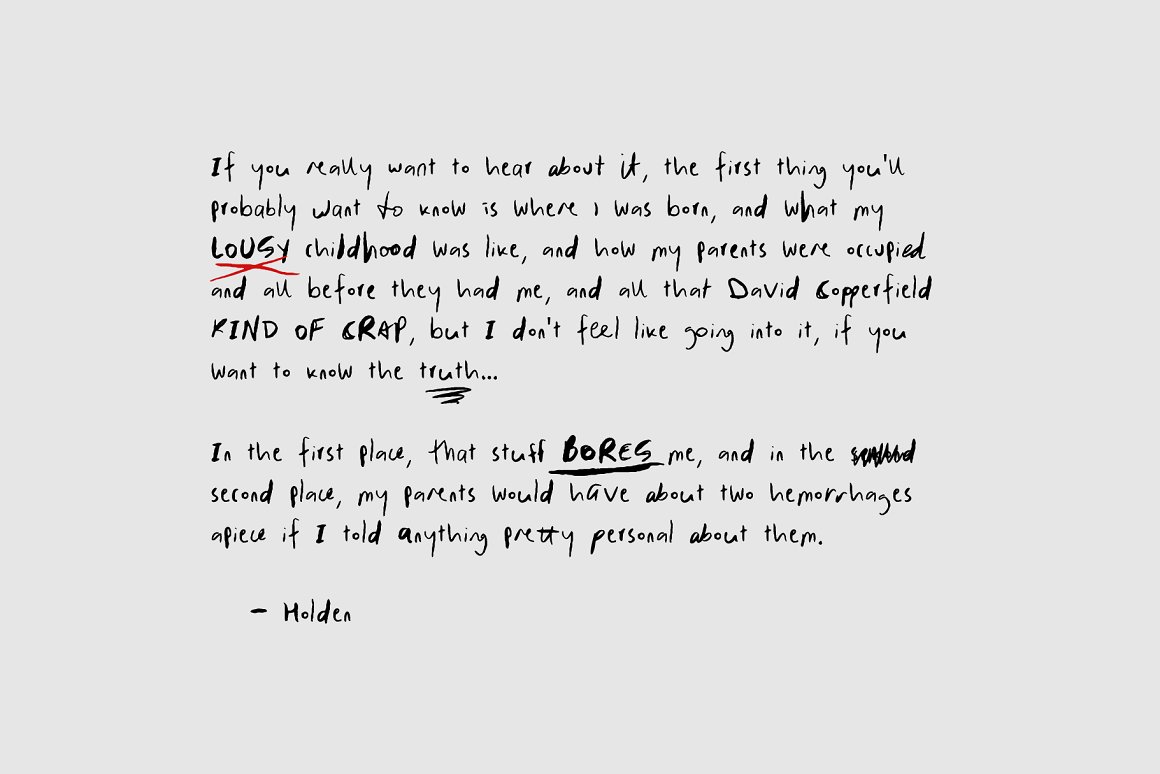 If you really want to hear about it, the first thing you'll
probably want to know is where i was born, and what my
LOUSY childhood was like, and how my parents were occupied
and all before they had me, and all that David Copperfield
KIND OF CRAP, but I don't feel like going into it, if you
want to know the truth...
In the first place, that stuff BORES me, and in the
second place, my parents would have about two hemorrhages
apiece if I told anything pretty personal about them.
– Holden